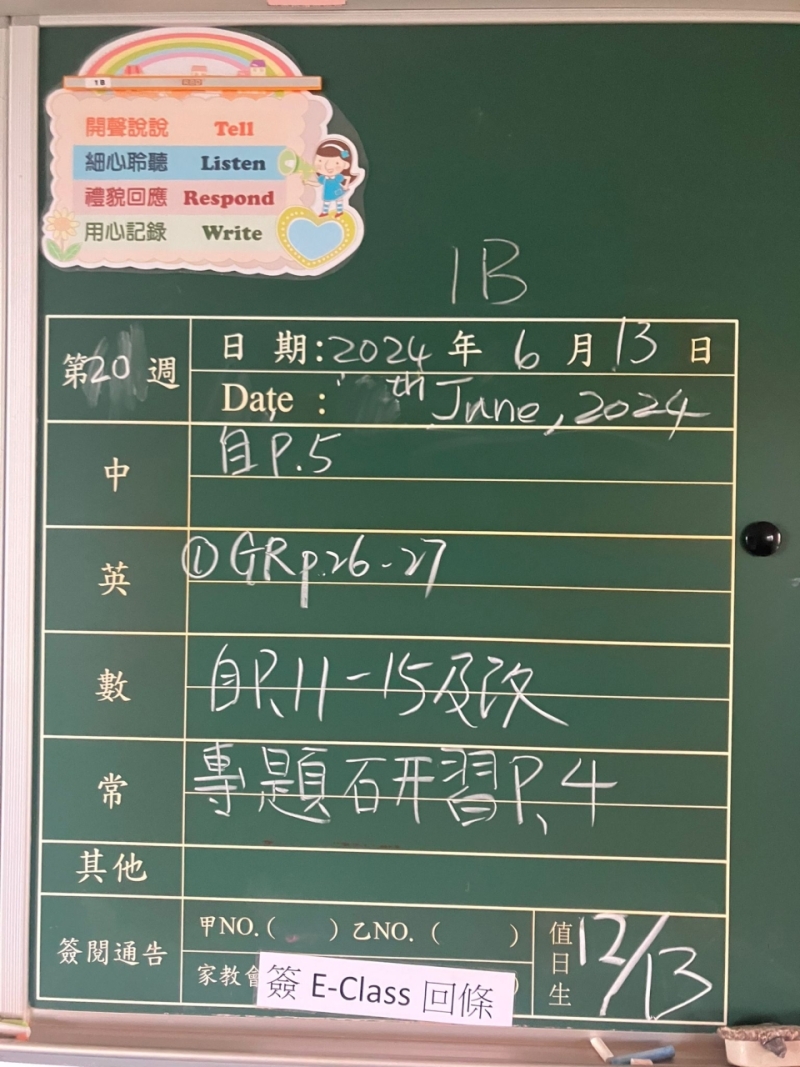 1B
開聲說說 Tell
細心聆聽 Listen
禮貌回應 Respond
用心記錄 Write
1B
第20週
日期:2024年6月13日
Date : th June, 2024
中 自P.5
英 ①GRp.26-27
數 自P.11-15及改
常 專題研習P.4
其他
簽閱通告
甲NO.( ) 乙NO.( )
家教會 )
簽 E-Class 回條
值日生 12/13